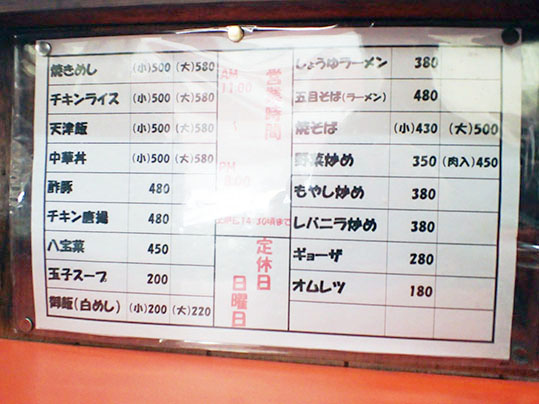 焼きめし (小)500 (大)580
チキンライス (小)500 (大)580
天津飯 (小)500 (大)580
中華丼 (小)500 (大)580
酢豚 480
チキン唐揚 480
八宝菜 450
玉子スープ 200
御飯(白めし) (小)200 (大)220
営業時間
AM
11:00
PM
8:00
14:30頃まで
定休日
日曜日
しょうゆラーメン 380
五目そば(ラーメン) 480
焼そば (小)430 (大)500
野菜炒め 350 (肉入)450
もやし炒め 380
レバニラ炒め 380
ギョーザ 280
オムレツ 180